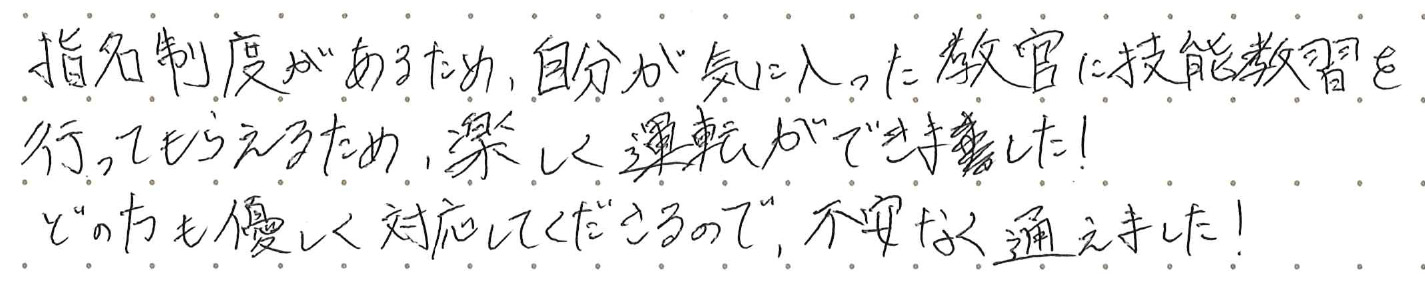 指名制度があるため、自分が気に入った教官に技能教習を
行ってもらえるため、楽しく運転ができました！
どの方も優しく対応してくださるので、不安なく通えました！